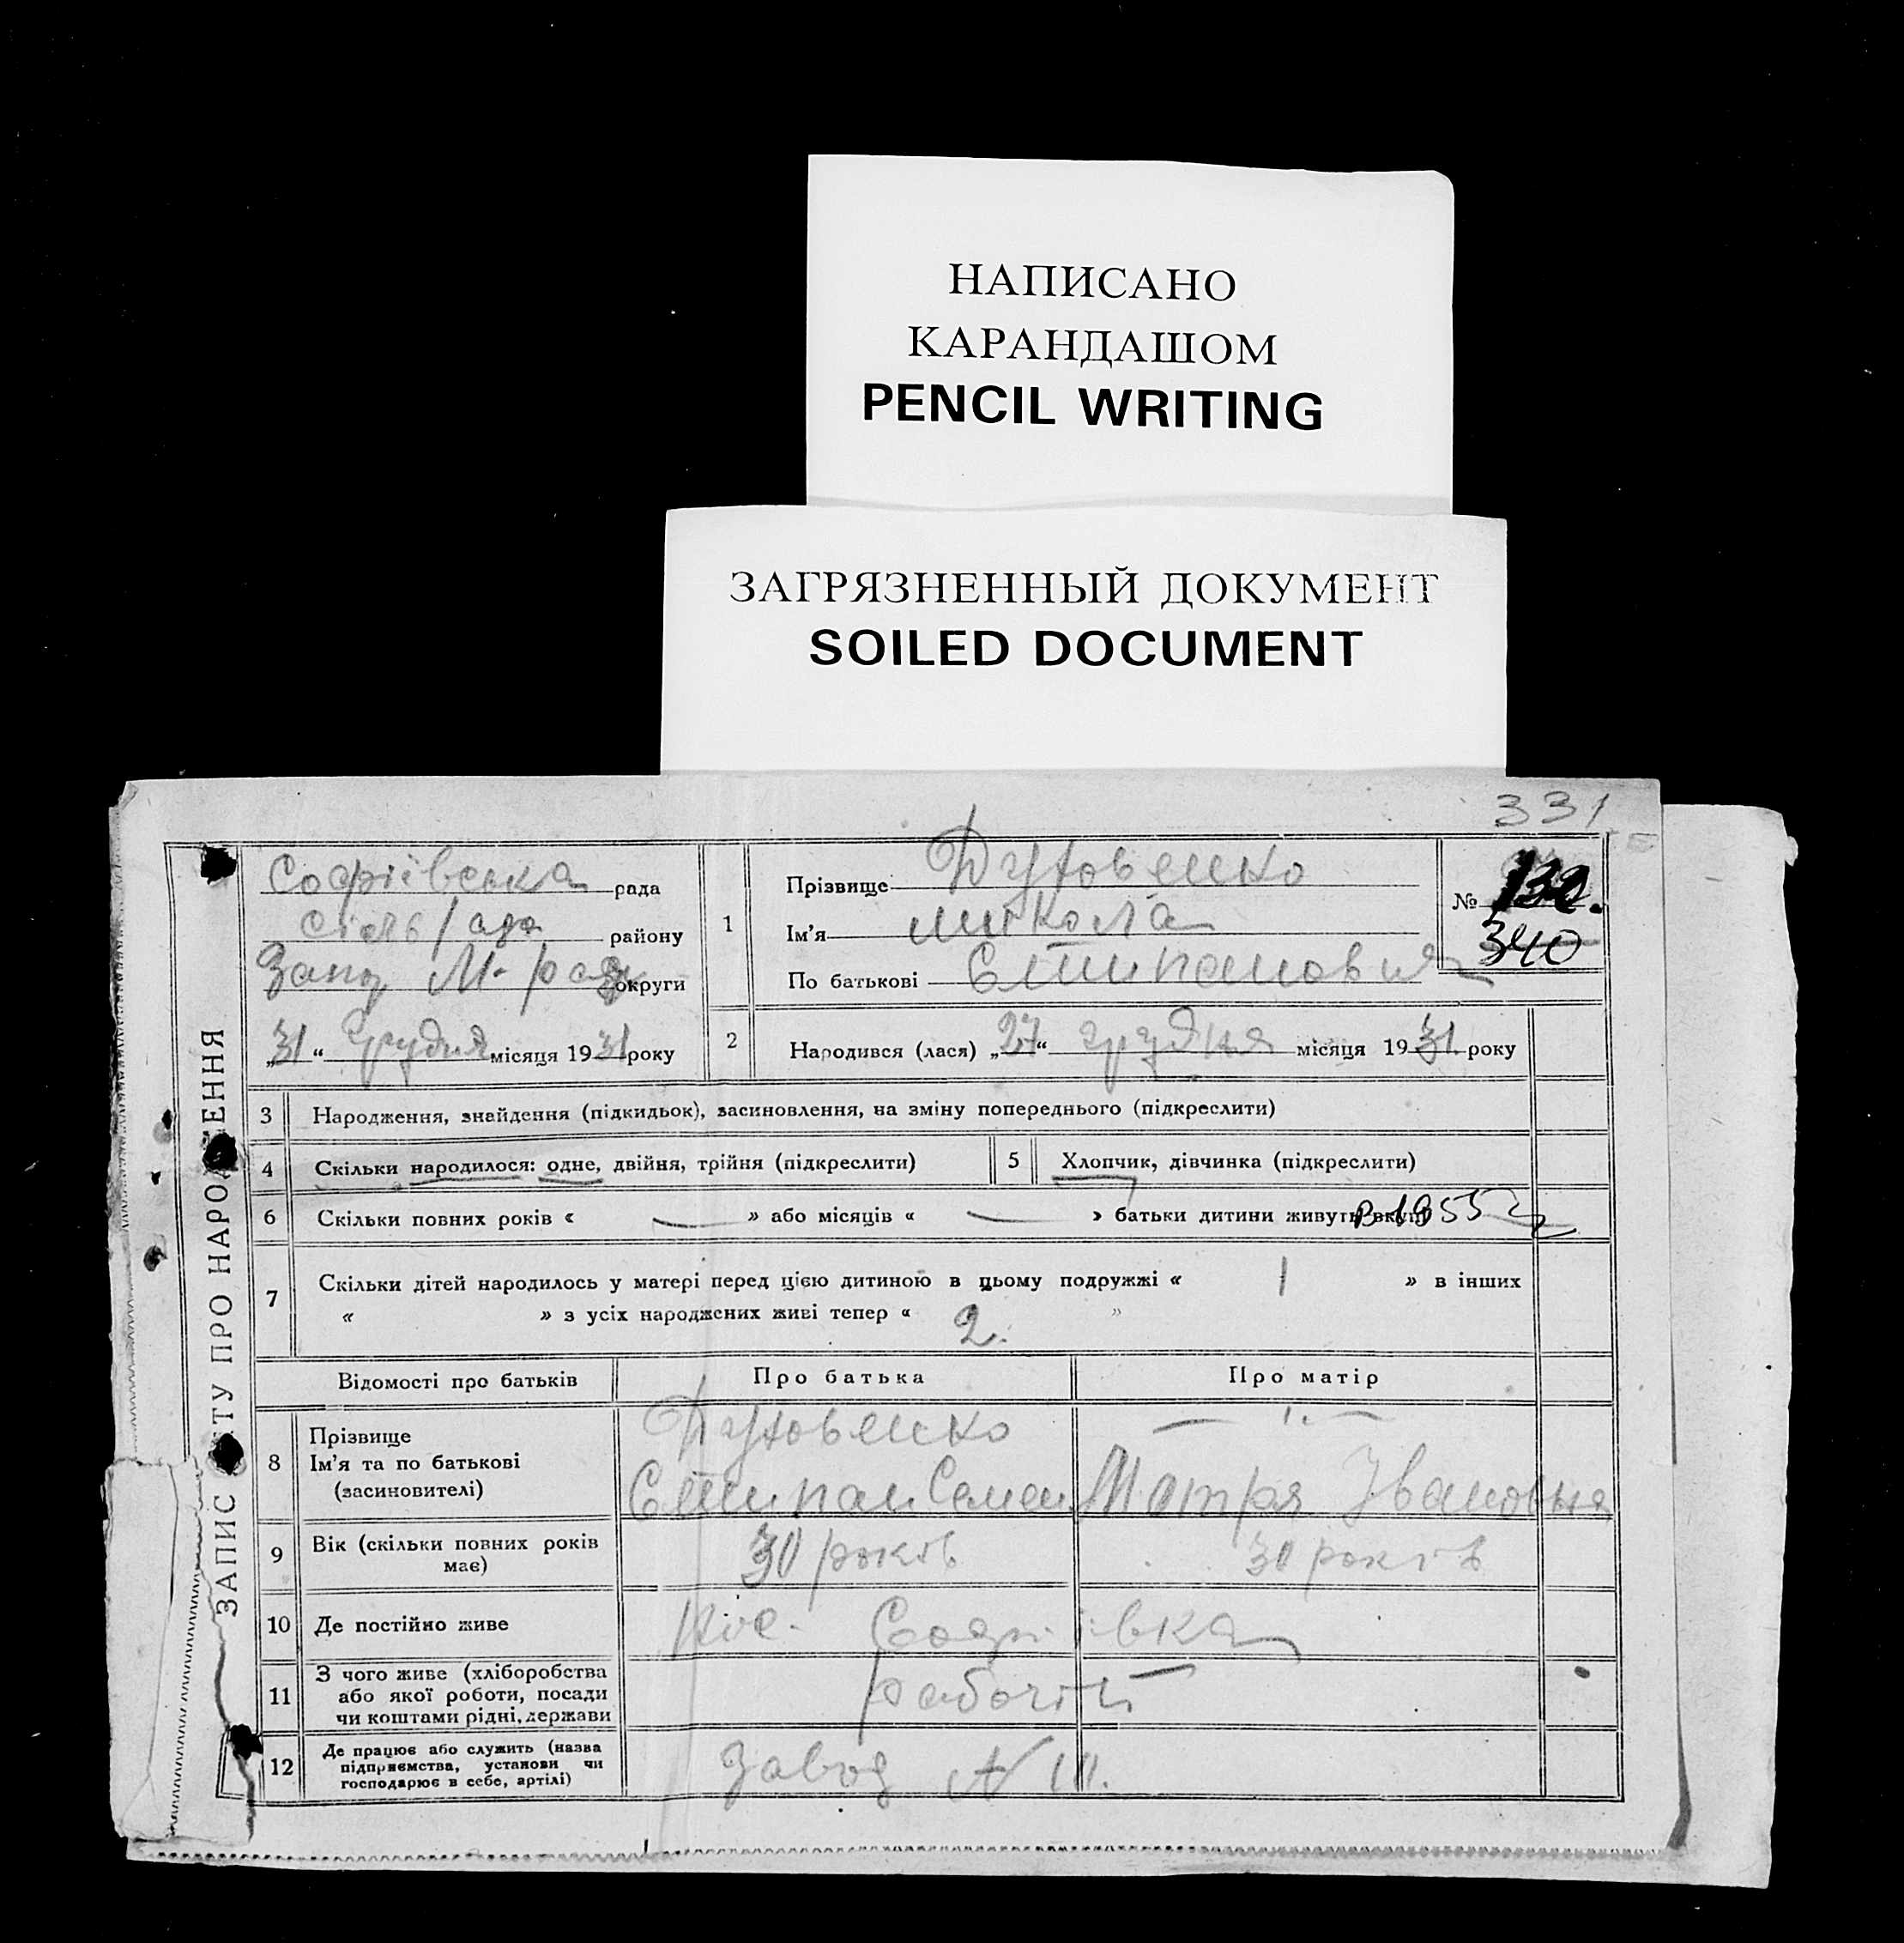 НАПИСАНО
КАРАНДАШОМ
PENCIL WRITING
ЗАГРЯЗНЕННЫЙ ДОКУМЕНТ
SOILED DOCUMENT
331
ЗАПИС АКТУ ПРО НАРОДЖЕННЯ
Софіївська рада
району
М. округи
„31“ Грудня місяця 1931 року
1
Прізвище
Ім'я Микола
По батькові Стипанович
№ 132.
340
2 Народився (лася) „27“ грудня місяця 1931 року
3 Народження, знайдення (підкидьок), засиновлення, на зміну попереднього (підкреслити)
4 Скільки народилося: одне, двійня, трійня (підкреслити) 5 Хлопчик, дівчинка (підкреслити)
6 Скільки повних років « — » або місяців « — » батьки дитини живуть вкупі
в 1955 г
7 Скільки дітей народилось у матері перед цією дитиною в цьому подружжі « 1 » в інших
« » з усіх народжених живі тепер « 2. »
Відомості про батьків Про батька Про матір
8 Прізвище
Ім'я та по батькові
(засиновителі)
— „ —
Стипан Семен Мотря Івановна
9 Вік (скільки повних років має) 30 років 30 років
10 Де постійно живе пос. Софіївка
11 З чого живе (хліборобства
або якої роботи, посади
чи коштами рідні, держави
рабочій
12 Де працює або служить (назва
підприємства, установи чи
господарює в себе, артілі)
завод N 10.